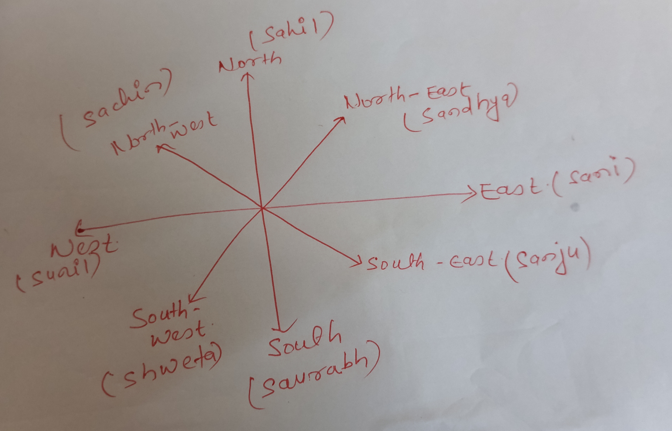 (Sahil)
North
(Sachin)
North-West
North-East
(Sandhya)
East (Sani)
West
(Sunil)
South-East (Sanju)
South-
West
(Shweta)
South
(Saurabh)